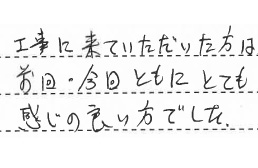 工事に来ていただいた方は
前回・今回ともにとても
感じの良い方でした。